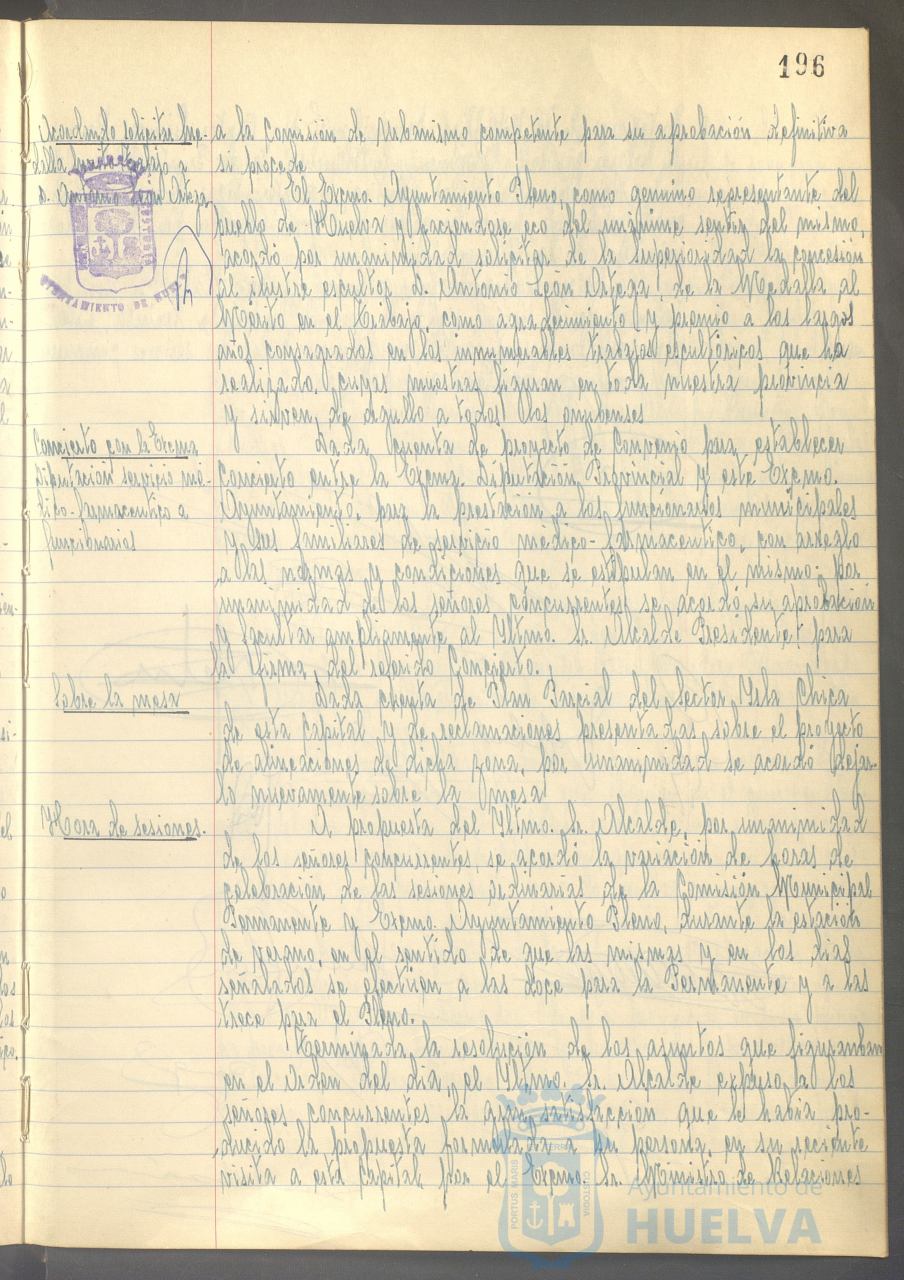 196
Acordando solicitar Me-
dalla
D. Antonio León Ortega
AYUNTAMIENTO DE HUELVA
a la Comisión de Urbanismo competente para su aprobación definitiva
si procede
El Excmo. Ayuntamiento Pleno, como genuino representante del
pueblo de Huelva y haciendose eco del unánime sentir del mismo,
acordó por unanimidad solicitar de la superioridad la concesión
al ilustre escultor D. Antonio León Ortega, de la Medalla al
Mérito en el Trabajo, como agradecimiento y premio a los largos
años consagrados en los innumerables trabajos escultóricos que ha
realizado, cuyas muestras figuran en toda nuestra provincia
y sirven de orgullo a todos los onubenses
Concierto con la Excma
Diputación servicio mé-
dico-farmaceutico a
funcionarios
Dada cuenta de proyecto de Convenio para establecer
Concierto entre la Excma. Diputación Provincial y este Excmo.
Ayuntamiento, para la prestación a los funcionarios municipales
y sus familiares de servicio médico-farmaceutico, con arreglo
a las normas y condiciones que se estipulan en el mismo; por
unanimidad de los señores concurrentes se acordó su aprobación
y facultar ampliamente al Iltmo. Sr. Alcalde Presidente para
la firma del referido Concierto.
Sobre la mesa
Dada cuenta de Plan Parcial del Sector Isla Chica
de esta capital y de reclamaciones presentadas sobre el proyecto
de alineaciones de dicha zona, por unanimidad se acordó dejar-
lo nuevamente sobre la mesa
Hora de sesiones.
A propuesta del Iltmo. Sr. Alcalde, por unanimidad
de los señores concurrentes se acordó la variación de horas de
celebración de las sesiones ordinarias de la Comisión Municipal
Permanente y Excmo. Ayuntamiento Pleno, durante la estación
de verano, en el sentido de que las mismas y en los dias
señalados se efectúen a las doce para la Permanente y a las
trece para el Pleno.
Terminada la resolución de los asuntos que figuraban
en el Orden del dia, el Iltmo. Sr. Alcalde expuso a los
señores concurrentes la gran satisfacción que le habia pro-
ducido la propuesta formulada a su persona, en su reciente
visita a esta capital, por el Excmo. Sr. Ministro de Relaciones
PORTUS MARIS
Ayuntamiento de
HUELVA